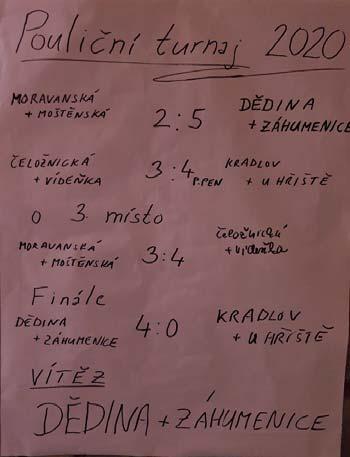 Pouliční turnaj 2020
MORAVANSKÁ + MOŠTĚNSKÁ 2:5 DĚDINA + ZÁHUMENICE
ČELOŽNICKÁ + VÍDEŇKA 3:4 P.PEN KRADLOV + U HŘIŠTĚ
o 3. místo
MORAVANSKÁ + MOŠTĚNSKÁ 3:4 Čeložnická + Vídeňka
Finále
DĚDINA + ZÁHUMENICE 4:0 KRADLOV + U HŘIŠTĚ
VÍTĚZ
DĚDINA + ZÁHUMENICE